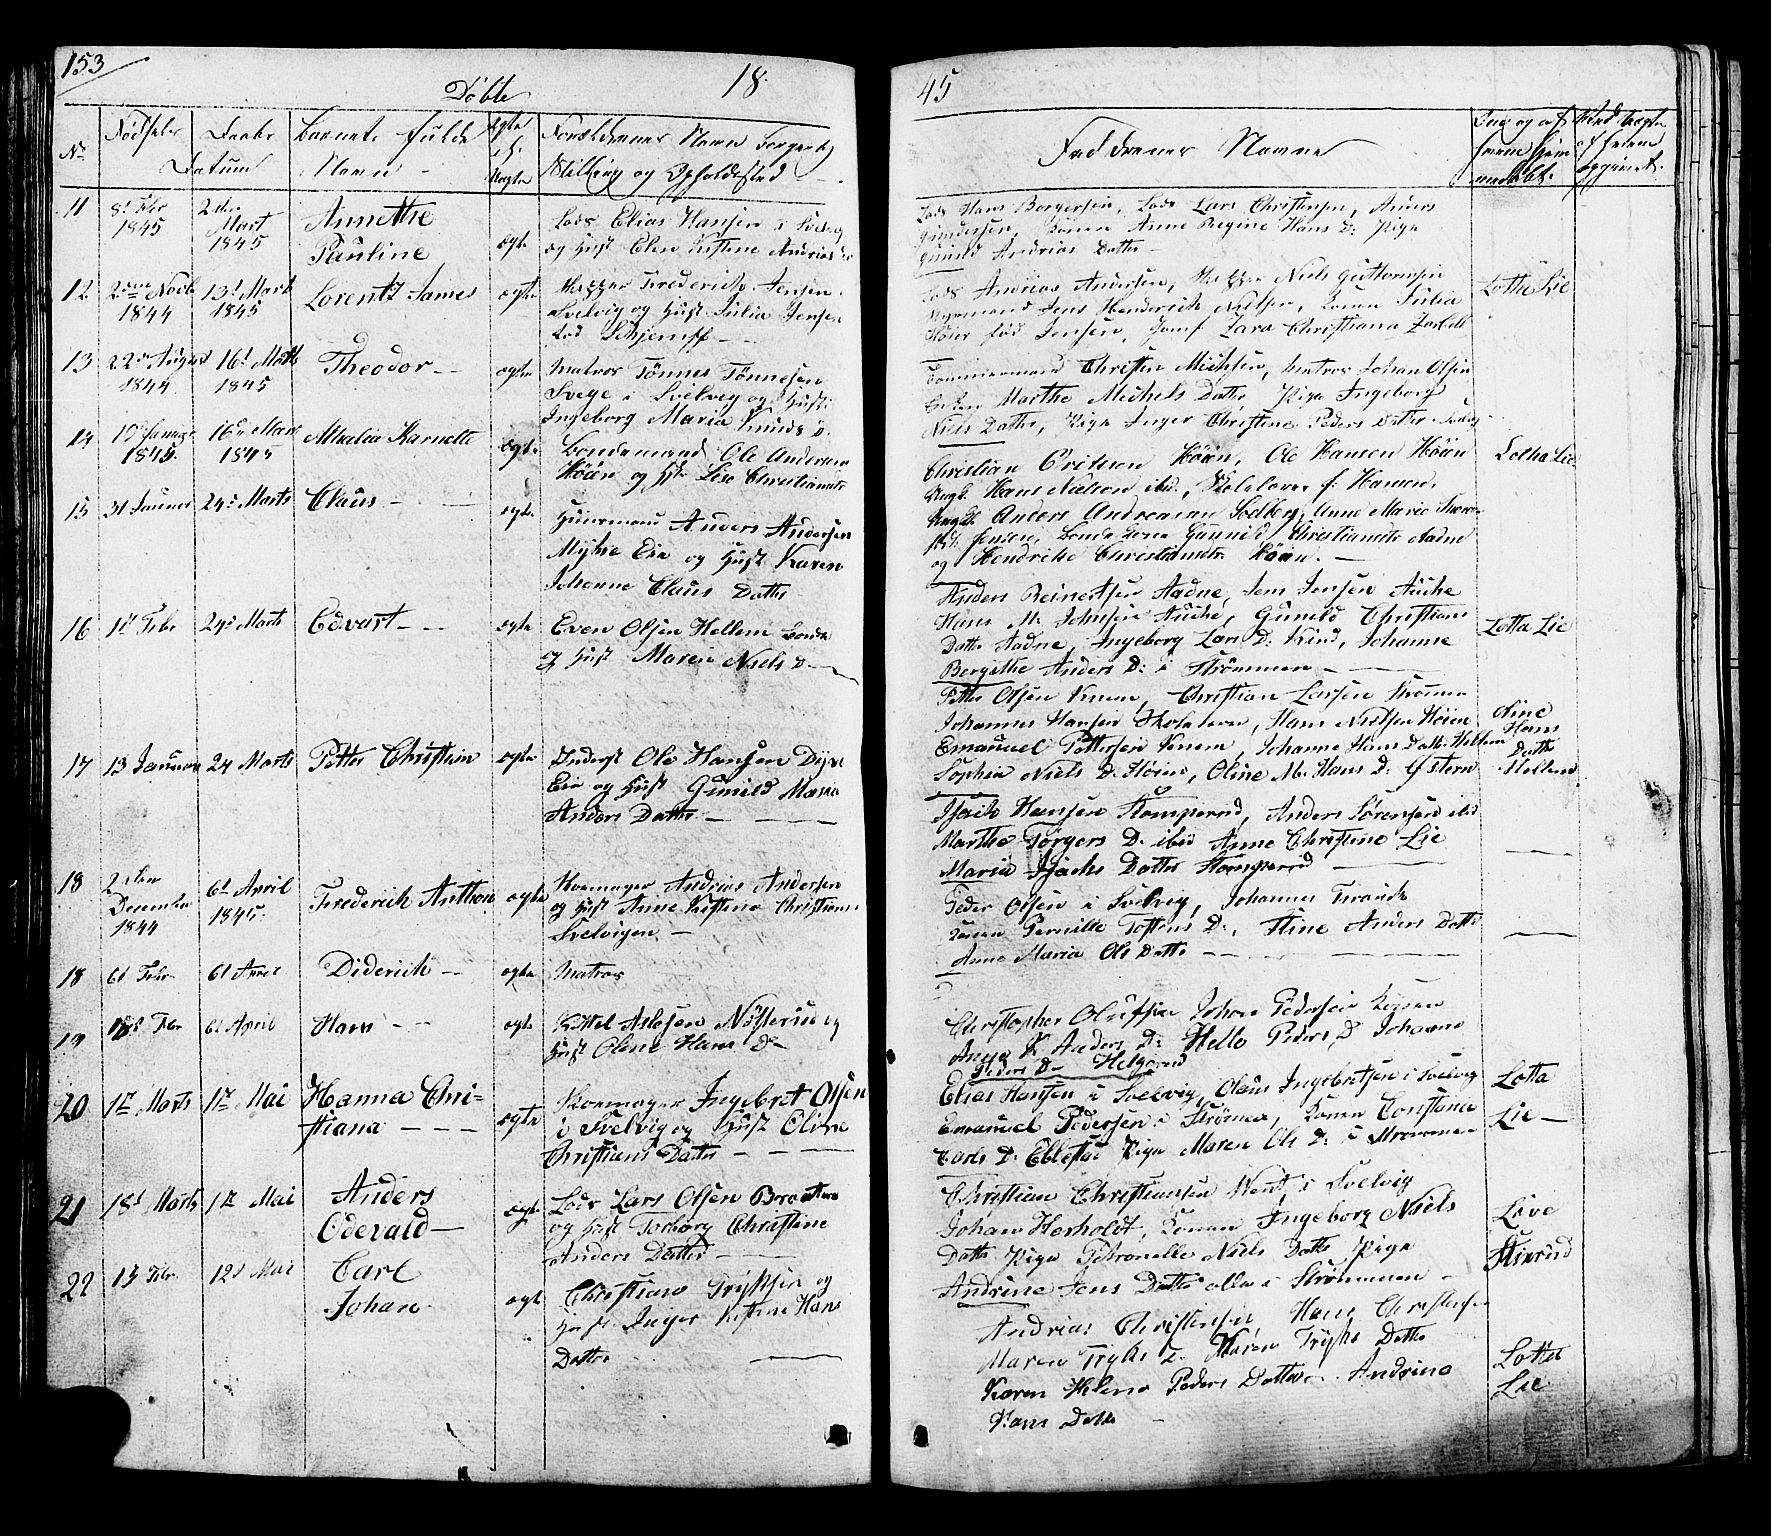 153
Döbte 18
45
No
Fødsels
Daabs
Datum
Barnets fulde
Navn
ægte
Forældrenes Navn
Stilling og Opholdssted
Faddrenes Navne
11
8d Febr
1845
2den
Mart
1845
Annethe
Pauline
ægte
Lods Elias Hansen i Svelvig
og Hust Elen Kistine Andrias D
Lods Hans Borgersen, Lods Lars Christensen, Anders
Gundersen, Konen Anne Regine Hans D: Pige
Gunild Andrias Datter
12
2den Novb
1844
13d Mart
1845
Lorentz James
ægte
Frederich Jensen
Svelvig og Hust Julia Jensen
fød Schjempf
Lods Andrias Andersen, Niels Guttormsen
Jens Henderich Nielsen, Konen Julia
Høier fød Jensen, Jomf Lara Christiana
Lotha Lie
13
22d August
1844
16d Marts
1845
Theodor
ægte
Matros Tönnes Tönnesen
Svege i Svelvig og Hust:
Ingeborg Maria Knuds D.
Tømmermand Christen Michelsen, Matros Johan Olsen
Enken Marthe Michels Datter, Pige Ingeborg
Niels Datter, Pige Inger Christine Peders Datter
14
19d Januar
1845
16d Mart
1845
Athalia Karnette
ægte
Bondemand Ole Andersen
Höän og H: Lise Christiansdr
Christian Erikson Höän, Ole Hansen Höän
Ungk. Hans Nielson ibid, Skolelærer f: Hansen.
Lotha Lie
15
31 Januar
24d Marts
Claus
ægte
Huusmand Anders Andersen
Myhre Eie og Hust Karen
Johanne Claus Datter
Ungk. Anders Andreasen Solberg, Anne Marie
Jensen, Gunild Christiansdr Aadne
og Hendrikke Christiansdr Höän.
Anders Reinertsen Aadne, Jens Jensen Auche
Hans M. Johnsen Auche, Gunild Christians
Datter Aadne, Ingeborg Lars D: Kind, Johanne
Bergithe Anders D: i Strömmen
16
1st Febr
24d Marts
Edvart
ægte
Even Olsen Hellem Bonde
og Hust Maren Niels D
Lotta Lie
Petter Olsen Knem, Christian Larsen Strömm
Johannes Hansen Skolelærer, Hans Nielsen Höien
Emanuel Pettersen Knem, Johanne Hans Datter Hellem
Sophia Niels D. Höien, Oline M. Hans D: Østern
Oline
Hans
Datter
Hellem
17
13 Januar
24 Marts
Petter Christian
ægte
Inderst Ole Hansen Dyre
Eie og Hust Gunild Maria
Anders Datter
Isach Hansen Stomperud, Anders Sörensen ibid
Marthe Torgers D. ibid Anne Christine Lie
Maria Isachs Datter Stomperud
18
2den
December
1844
6d April
1845
Frederich Anthon
ægte
Skoemager Andrias Andersen
og Hust Anne Kistine Christians
Svelvigen
Peder Olsen i Svelvig, Johannes
Konen Pernille Tostens D:, Stine Anders Datter
Anne Maria Ols Datter
18
6d Febr
6d April
Diderich
ægte
Matros
19
18d Febr
6d April
Hans
ægte
Kittel Aslesen Nösterud og
Hust Olene Hans D
Christopher Olufsen Johan Pedersen Konen
Anne K Anders D: Helle Peders D Johanne
Peders D Helgerud
20
1st Marts
1st Mai
Hanna Chri-
stiana
ægte
Skoemager Ingebret Olsen
i Svelvig og Hust Oline
Christians Datter
Elias Hansen i Svelvig, Olaus Ingebretsen i Svelvig
Emanuel Pedersen i Strömmen, Konen Constance
Carls D: Ebbestad Pige Maren Ols D: i Strömmen
Lotta
Lie
21
18d Marts
1st Mai
Anders
Odevald
ægte
Lods Lars Olsen Braaten
og Hust Torborg Christine
Anders Datter
Christian Christiansen Went i Svelvig
Johan Herholdt, Konen Ingeborg Niels
Datter Pige Petronelle Niels Datter Pige
Andrine Jens Datter alle i Strömmen
Live
22
13 Febr
12d Mai
Carl
Johan
ægte
Christian Trÿkssen og
Hust Inger Kistine Hans
Datter
Andrias Christensen Hans Christensen
Maren Tryks D. Maren Tryks Datter
Karen Helene Peders Datter Andrine
Hans Datter
Lotta
Lie